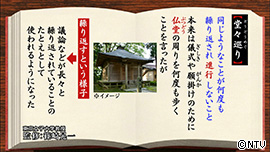 【堂々巡り】
同じようなことが何度も
繰り返され進行しないこと
本来は儀式や願掛けのために
がんか
仏堂の周りを何度も歩く
ぶつどう
ことを言ったが
※イメージ
繰り返すという様子
議論などが長々と
繰り返されていることの
たとえとして
使われるようになった
©NTV